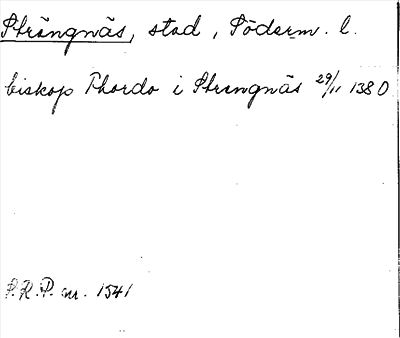 Strängnäs, stad, Söderm. l.
biskop Thordo i Strengnäs 29/11 1380
S.R.P. nr. 1541